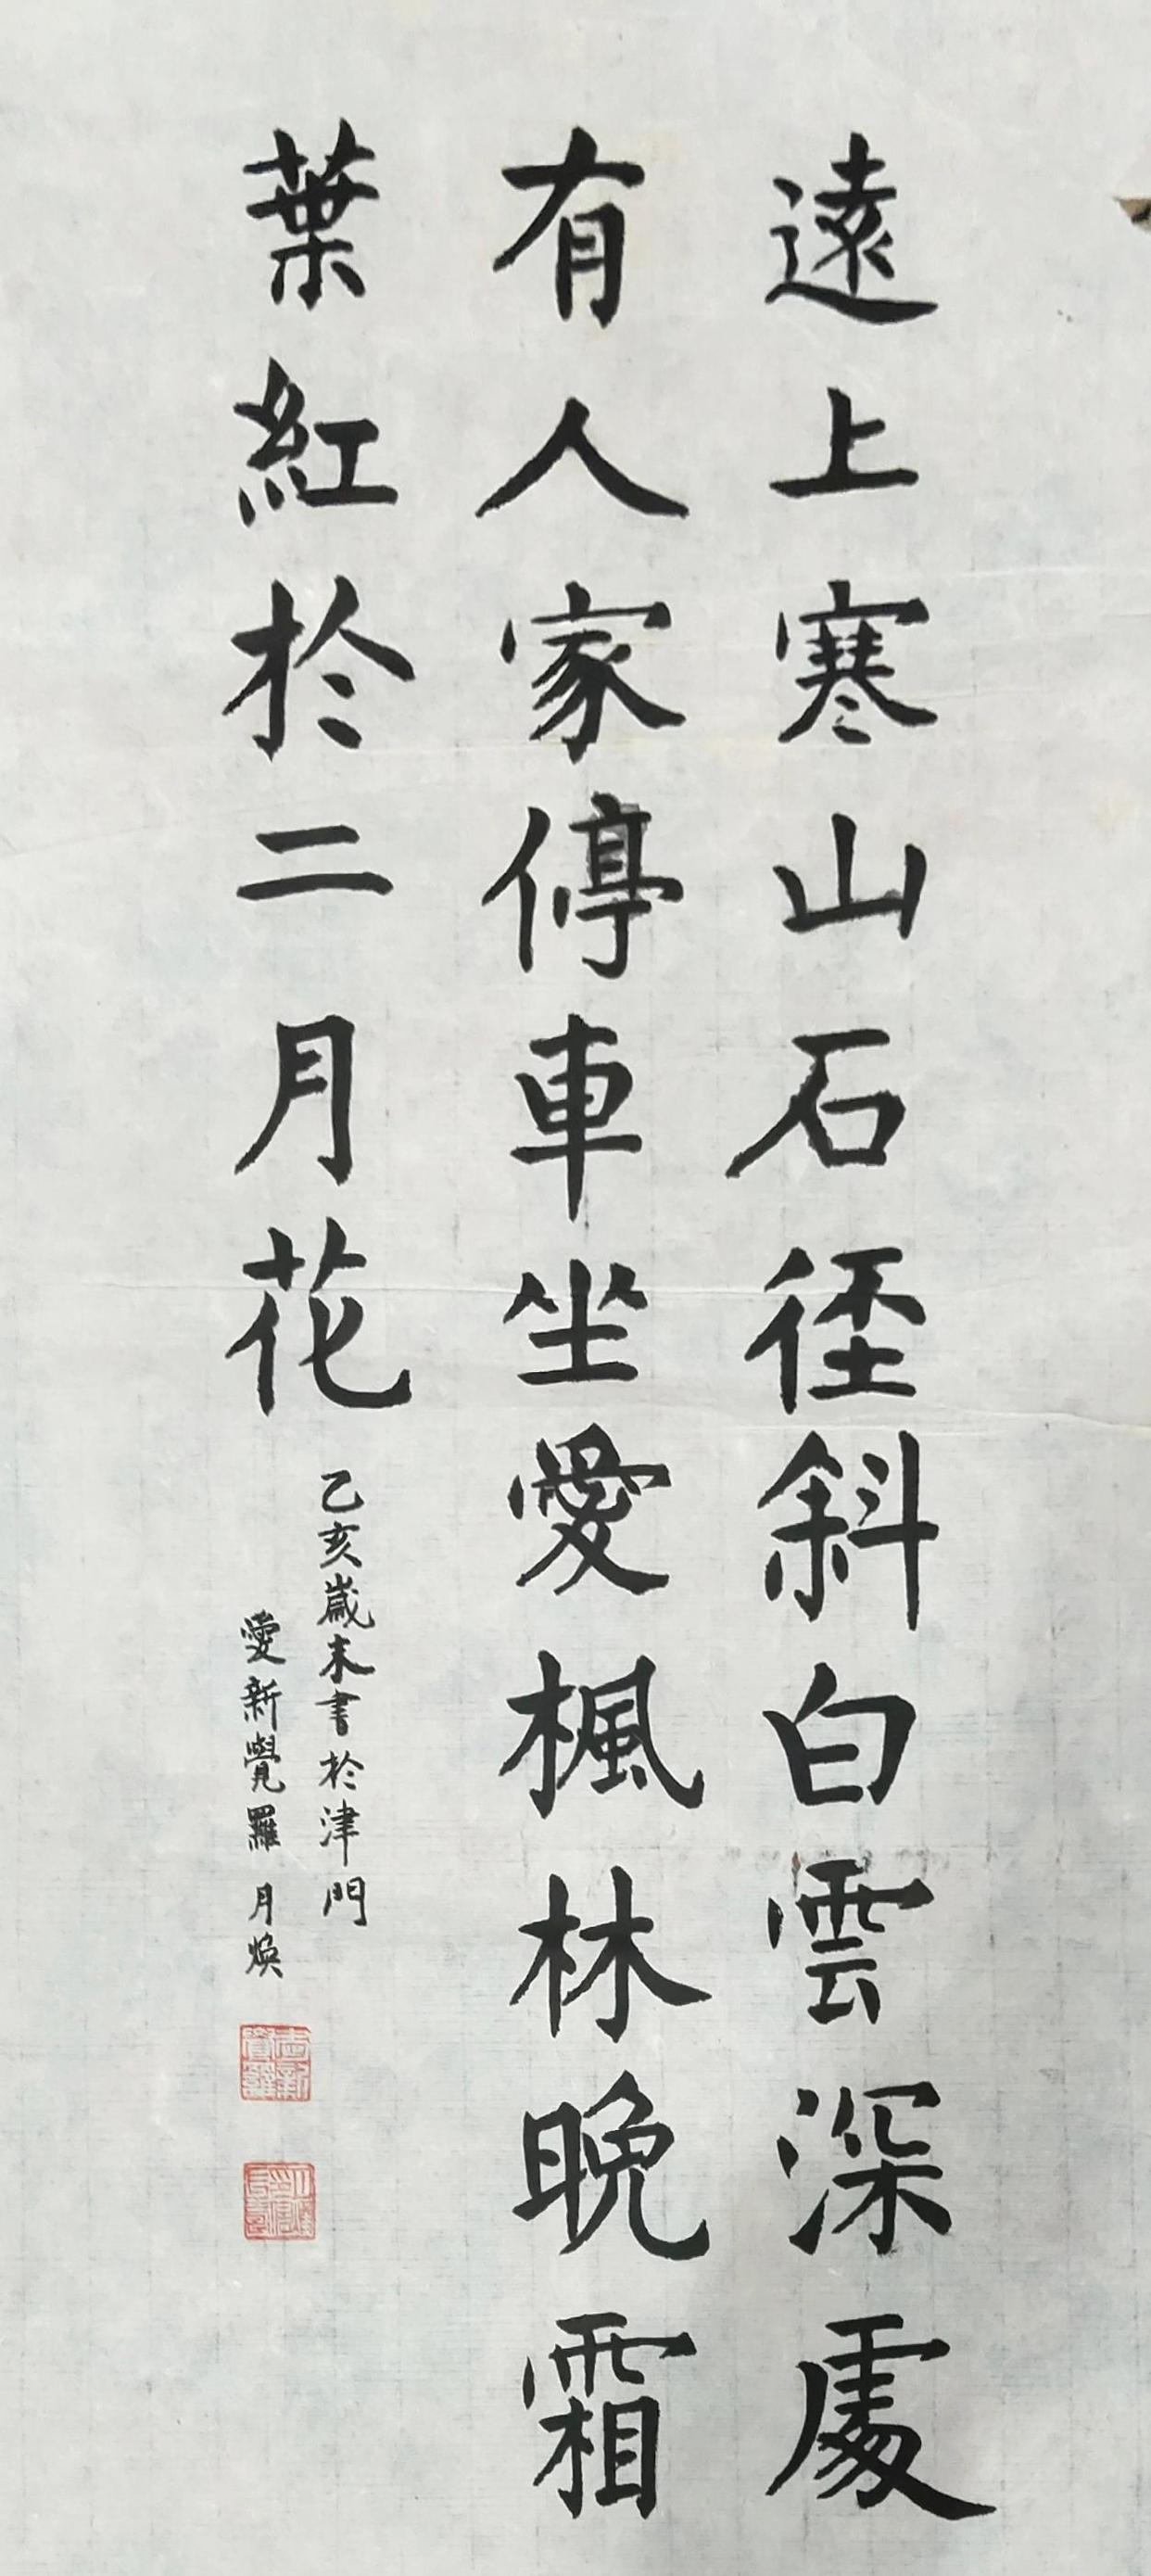 遠上寒山石徑斜白雲深處
有人家停車坐愛楓林晚霜
葉紅於二月花
乙亥歲末書於津門
愛新覺羅 月煥